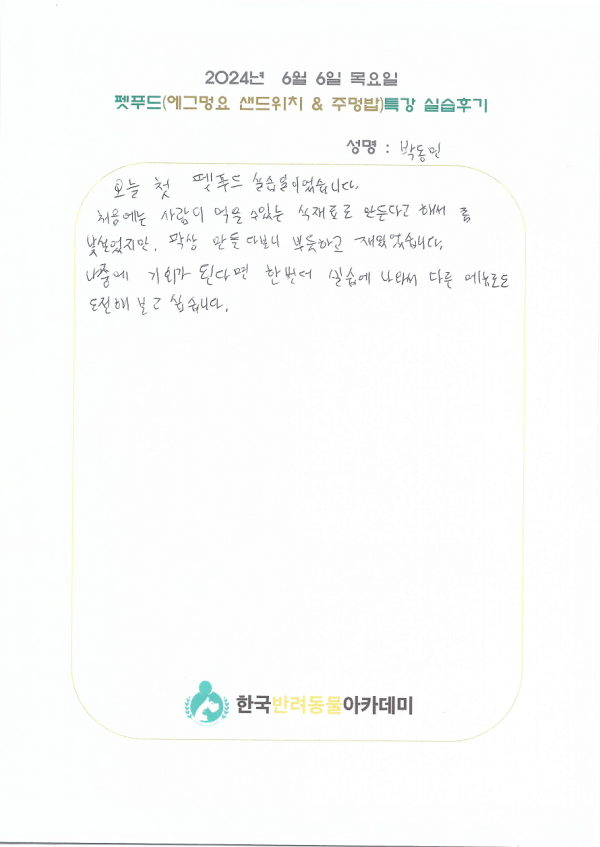 2024년 6월 6일 목요일
펫푸드(에그멍요 샌드위치 & 주멍밥)특강 실습후기
성명 : 박동민
오늘 첫 펫푸드 실습날이었습니다.
처음에는 사람이 먹을 수있는 식재료로 만든다고 해서 좀
낯설었지만, 막상 만들다보니 뿌듯하고 재밌었습니다.
나중에 기회가 된다면 한번더 실습에 나와서 다른 메뉴로도
도전해 보고 싶습니다.
한국반려동물아카데미